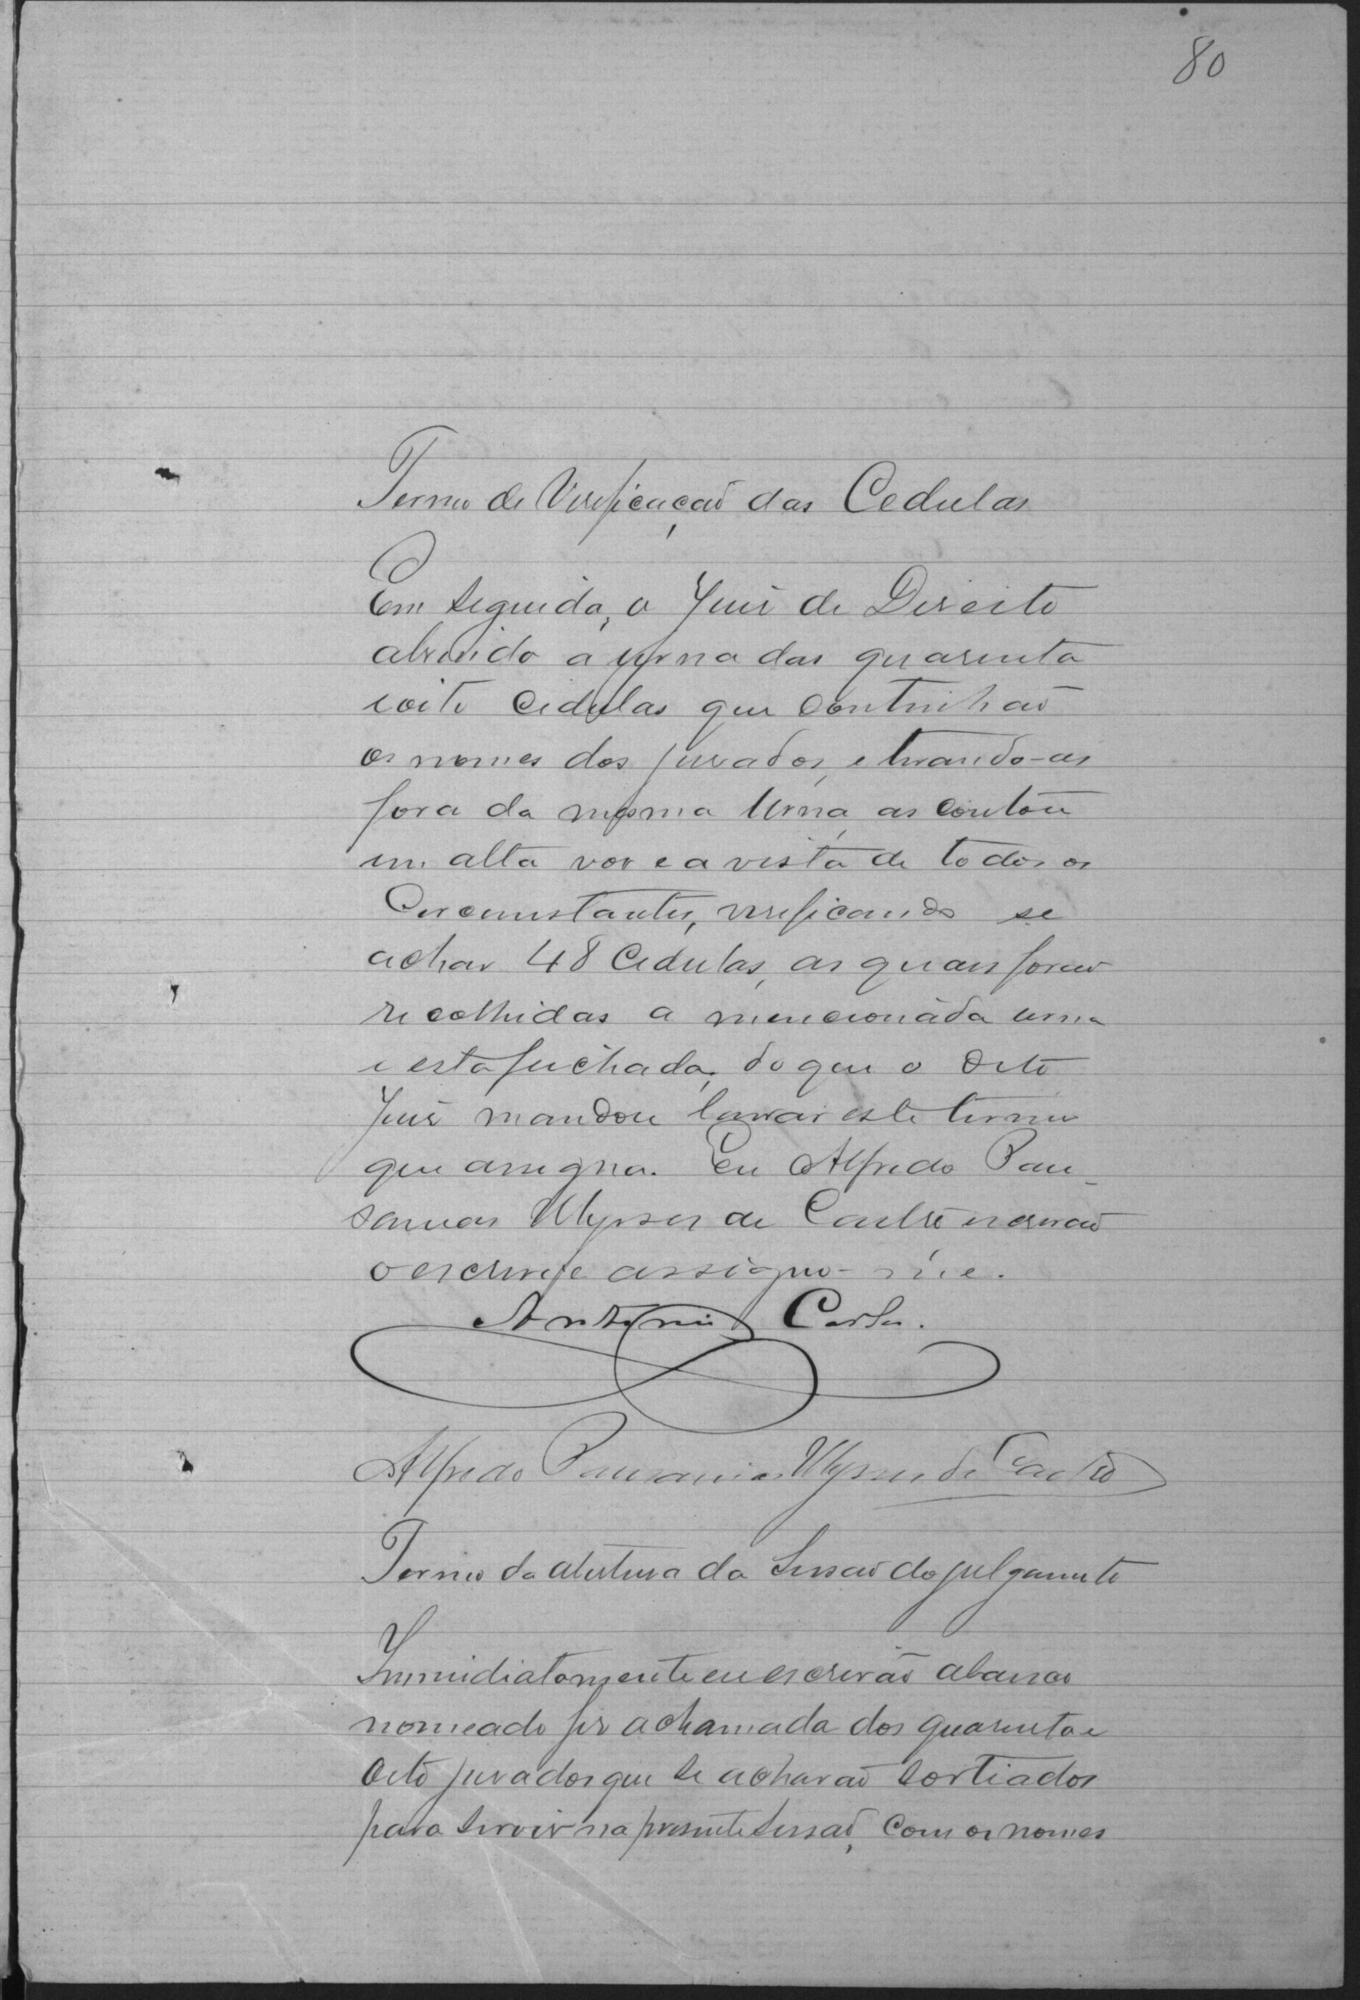 80
Termo de Verificação das Cedulas
Em seguida, o Juiz de Direito
abrindo a urna das quarenta
i oito cedulas que continhaõ
os nomes dos jurados, e tirando-as
fora da mesma Urna, as contou
em alta voz e a vista de todos os
Circumstantes, verificando se
achar 48 Cedulas, as quaes foraõ
recolhidas a mencionada urna
e esta fechada, do que o dito
Juiz mandou lavrar este termo
que assigna. Eu Alfredo Pau-
sanias Ulysses de Castro escrivaõ
o escrevi e assigno-me.
Antonio Carlos.
Alfredo Pausanias Ulysses de Castro
Termo da abertura da Sessaõ do julgamento
Immidiatamente eu escrivão abaixo
nomeado fiz a chamada dos quarenta e
oito jurados que se acharaõ sortiados
para servir na presente sessaõ, com os nomes